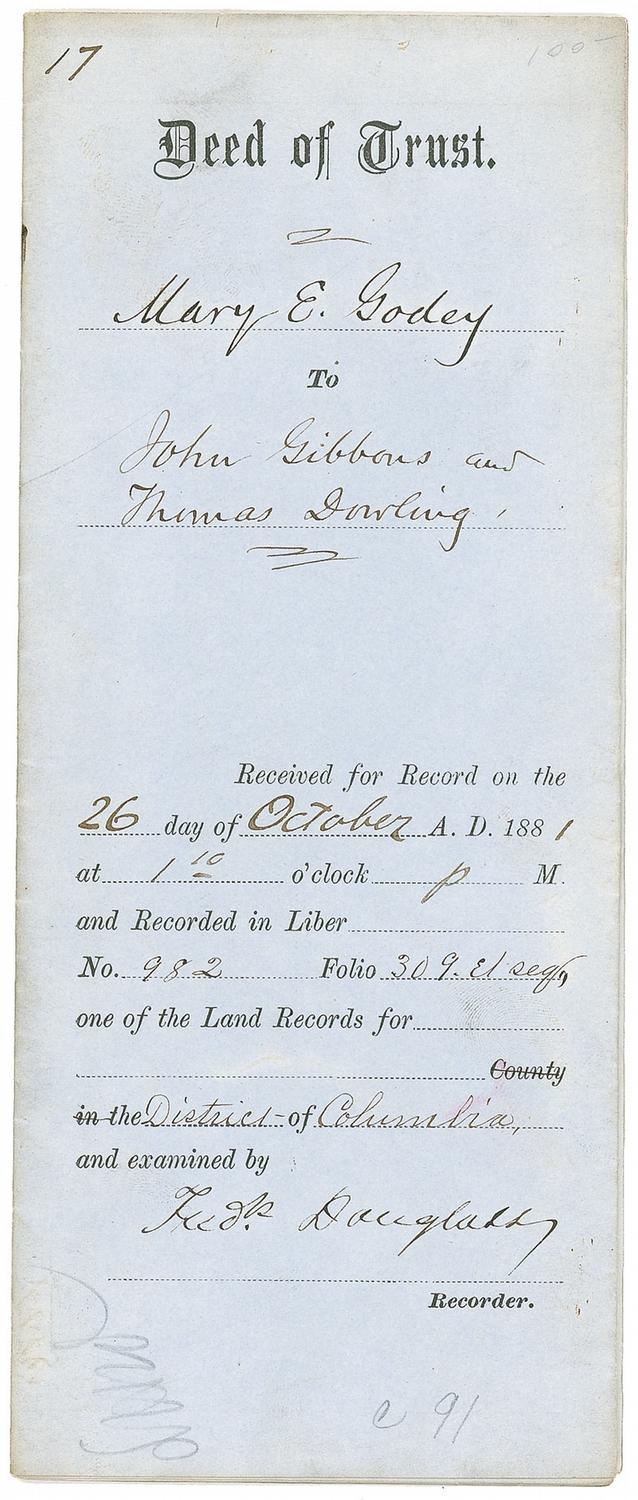 17
100
Deed of Trust.
Mary E. Godey
To
John Gibbons and
Thomas Dowling
Received for Record on the
26 day of October A. D. 1881
at 1 10 o'clock p M.
and Recorded in Liber
No. 982 Folio 309. Et seq,
one of the Land Records for
County
in the District of Columbia,
and examined by
Fredk. Douglass,
Recorder.
c 91